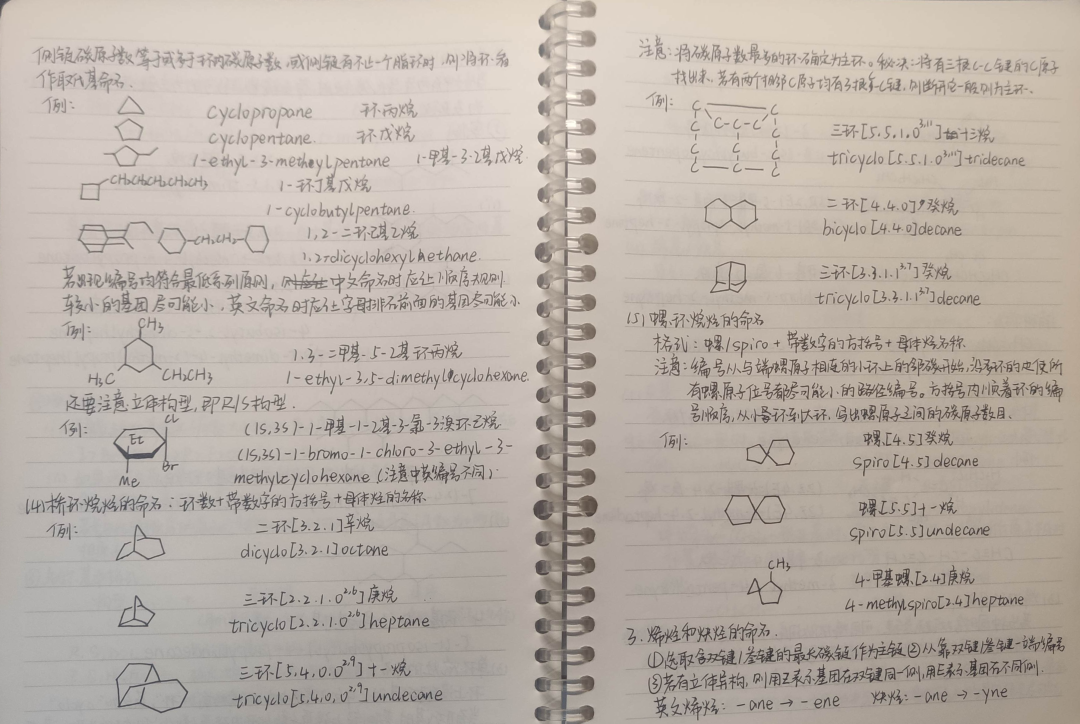 侧链碳原子数等于或多于环内碳原子数，或侧链有不止一个脂环时，则将环看
作取代基命名.
例:
cyclopropane 环丙烷
cyclopentane 环戊烷
1-ethyl-3-methylpentane 1-甲基-3-乙基戊烷.
CH2CH2CH2CH2CH3 1-环丁基戊烷
1-cyclobutylpentane.
CH2CH2 1,2-二环己基乙烷
1,2-dicyclohexylethane.
若出现编号均符合最低系列原则，则 中文命名时应让顺序规则
较小的基团尽可能小，英文命名时应让字母排在前面的基团尽可能小
例:
CH3
H3C CH2CH3
1,3-二甲基-5-乙基环丙烷
1-ethyl-3,5-dimethylcyclohexane.
还要注意立体构型，即R/S构型.
例:
Et Cl Br Me
(1S,3S)-1-甲基-1-乙基-3-氯-3-溴环己烷
(1S,3S)-1-bromo-1-chloro-3-ethyl-3-
methylcyclohexane (注意中英编号不同)
(4)桥环烷烃的命名: 环数+带数字的方括号+母体烃的名称.
例:
二环[3.2.1]辛烷
dicyclo[3.2.1]octane
三环[2.2.1.0^2,6]庚烷
tricyclo[2.2.1.0^2,6]heptane
三环[5.4.0.0^2,9]十一烷
tricyclo[5.4.0.0^2,9]undecane
注意: 将碳原子数最多的环确定为主环。秘诀:将有三根C-C键的C原子
找出来，若有两个相邻C原子均有3根C-C键，则断开它一般则为主环.
例:
C C
C C-C-C C
C C
C — C — C
三环[5.5.1.0^3,11]十三烷
tricyclo[5.5.1.0^3,11]tridecane
二环[4.4.0]癸烷
bicyclo[4.4.0]decane
三环[3.3.1.1^3,7]癸烷
tricyclo[3.3.1.1^3,7]decane
(5)螺环烷烃的命名
格式: 螺/spiro + 带数字的方括号+母体烃名称.
注意: 编号从与端螺原子相连的小环上的邻碳开始，沿 环的边使所
有螺原子位号都尽可能小的路径编号。方括号内顺着环的编
号顺序，从小 环到大环，写出螺原子之间的碳原子数目.
例:
螺[4.5]癸烷
spiro[4.5]decane
螺[5.5]十一烷
spiro[5.5]undecane
CH3
4-甲基螺[2.4]庚烷
4-methylspiro[2.4]heptane
3.烯烃和炔烃的命名.
①选取含双键/叁键的最长碳链作为主链②从靠双键/叁键一端编号
③若有立体异构，则用Z表示基团在双键同一侧，用E表示基团在不同侧.
英文烯烃: -ane → -ene 炔烃: -ane → -yne